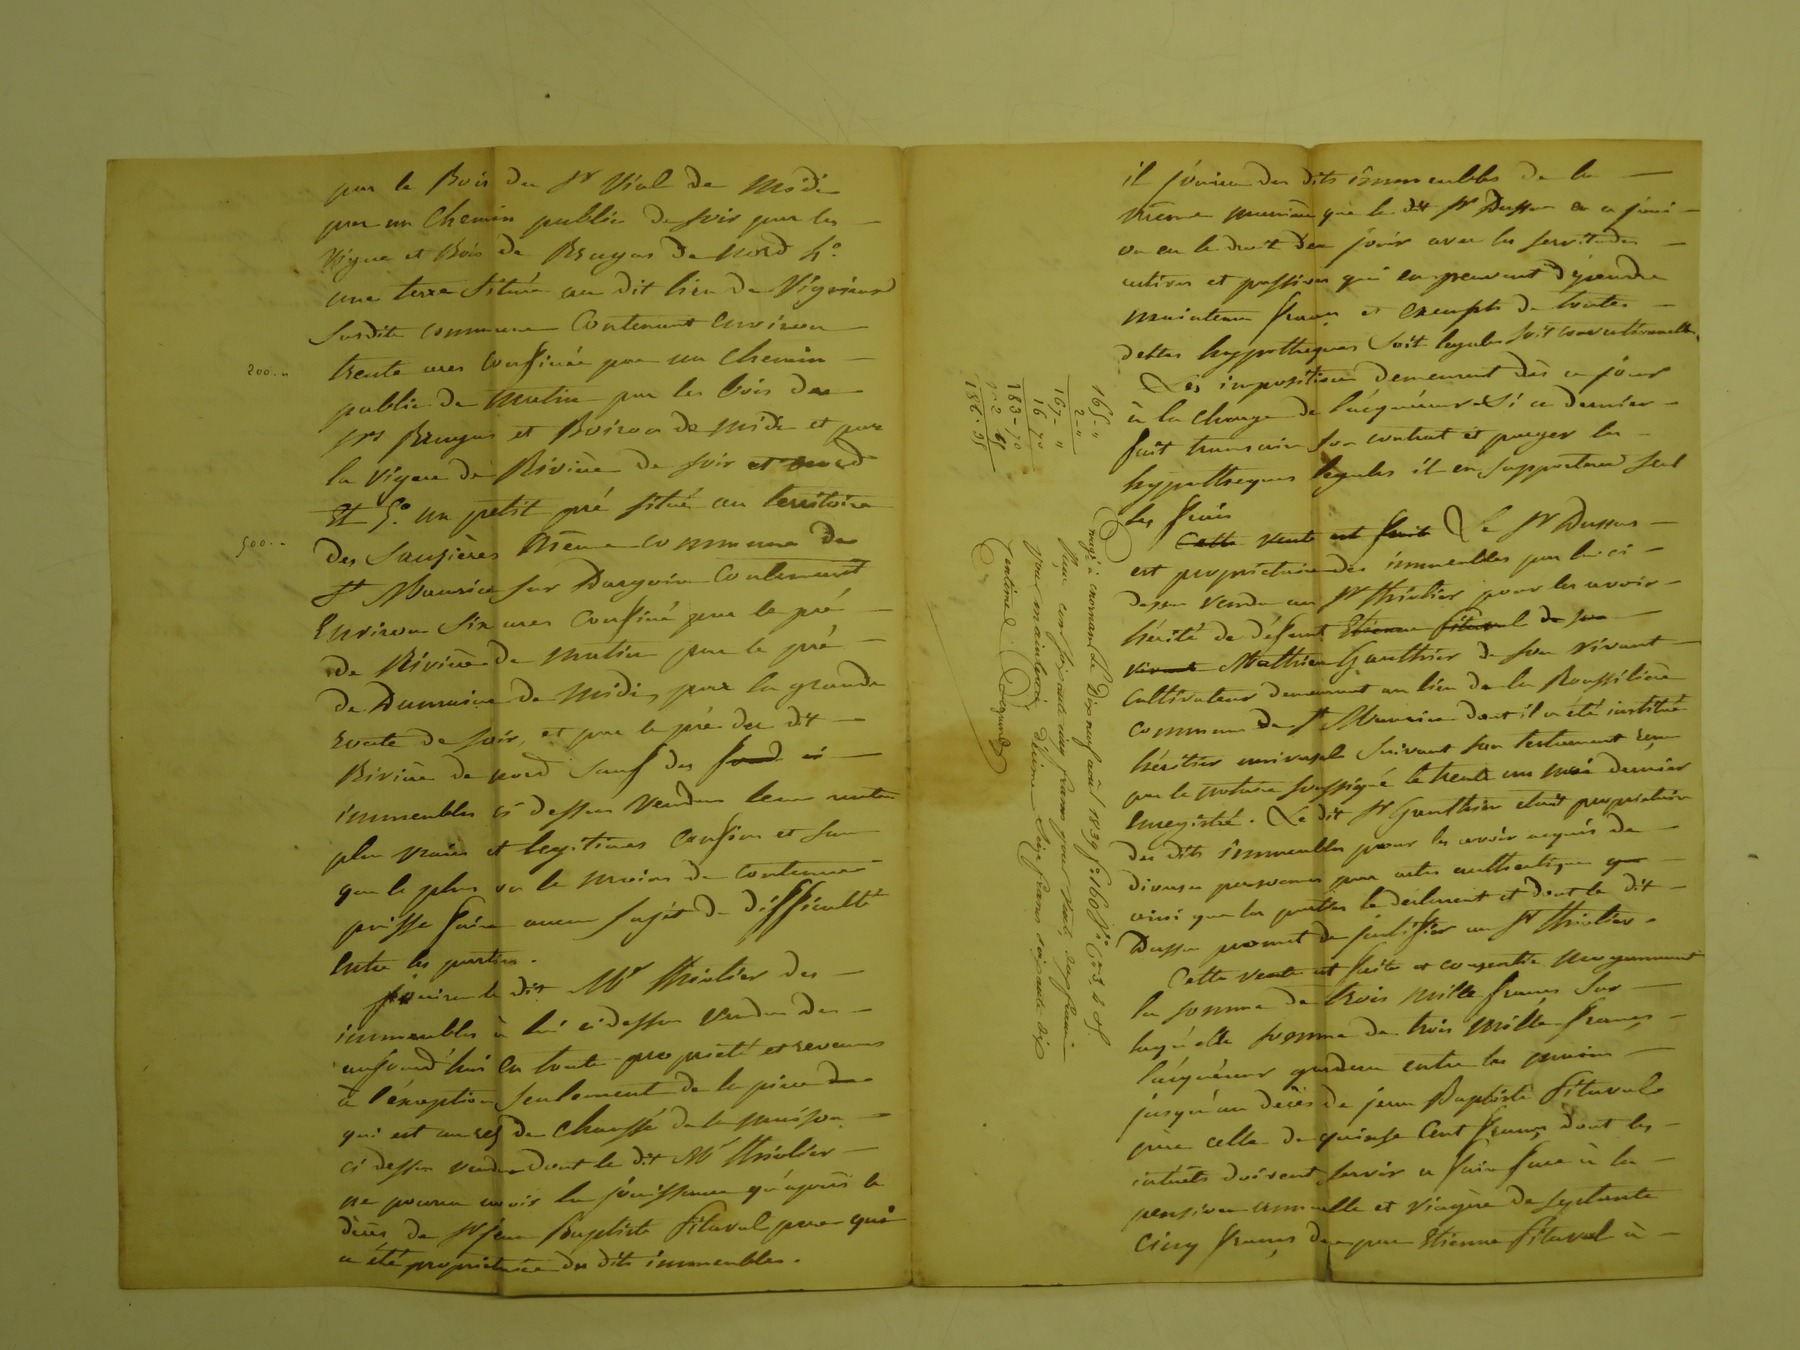 par le Bois du Sr Vial de Midi
par un Chemin public de soir par les
Vigne et Bois de Brugas de Nord 4°
une terre située au dit lieu de
Susdite commune Contenant environ
200..
trente ares confinée par un Chemin
public de Matin par les bois des
Srs et Boiron de Midi et par
la Vigne de Rivière de soir et nord
Et 5° un petit pré situé au territoire
500..
des Saugières Même commune de
St Maurice sur Dargoire Contenant
Environ Six ares Confiné par le pré
de Rivière de Matin par le pré
de Dumaine de Midi, par la grande
route de soir, et par le pré du dit
Rivière de nord Sauf des fond ci
immeubles ci dessus Vendus leurs autres
plus vrais et legitimes Confins et sans
que le plus ou le moins de contenue
puisse faire aucun sujet de difficulté
Entre les parties.
jouira le dit Mr Thiolier des
immeubles à lui ci dessus Vendus dès
aujourd'hui En toute propriété et revenus
à l'éxeption seulement de la pièce
qui est au rez de Chaussé de la maison
ci dessus vendue dont le dit Mr Thiolier
ne pourra avoir la jouissance qu'après le
décès de Sr jean Baptiste Pitaval père qui
a été propriétaire des dits immeubles.
165 "
2 "
167 - "
16 70
183 - 70
2 25
186 - 95
Enregé à mornant le Dix neuf août 1839 f°
Reçu cent soixante cinq francs pour vente, deux francs
pour décime Seize francs soixante dix
centimes
il jouira des dits immeubles de la
même manière que le dit Sr Dussur en a joui
ou eu le droit d'en jouir avec les servitudes
actives et passives qui en peuvent dépendre
maintenus francs et exempts de toutes
dettes hypotheques Soit legales soit conventionnelles.
Les impositions demeurent dès ce jour
à la charge de l'acquéreur Si ce dernier
fait transcrire son contrat et purger les
hypotheques legales il en supportera seul
les frais
Cette vente est faite Le Sr Dussur
est propriétaire des immeubles par lui ci
dessus vendus au Sr Thiolier pour les avoir
hérité de défunt Etienne Pitaval de son
vivant Mathieu Gauthier de son vivant
cultivateur demeurant au lieu de la Roussilière
commune de St Maurice dont il a été institué
héritier universel Suivant son testament reçu
par le notaire soussigné le trente un mai dernier
Enregistré. Le dit Sr Gauthier etait propriétaire
des dits immeubles pour les avoir acquis de
diverses personnes par actes authentiques que
ainsi que les parties le déclarent et dont le dit
Dussur promet de justifier au Sr Thiolier.
Cette vente est faite et consentie moyennant
la somme de trois mille francs Sur
laquelle somme de trois mille francs
l'acquéreur gardera entre les mains
jusqu'au décès de jean Baptiste Pitaval
père celle de quinse Cent francs dont les
intérêts doivent servir a faire face à la
pension annuelle et viagère de septante
Cinq francs due par Etienne Pitaval à